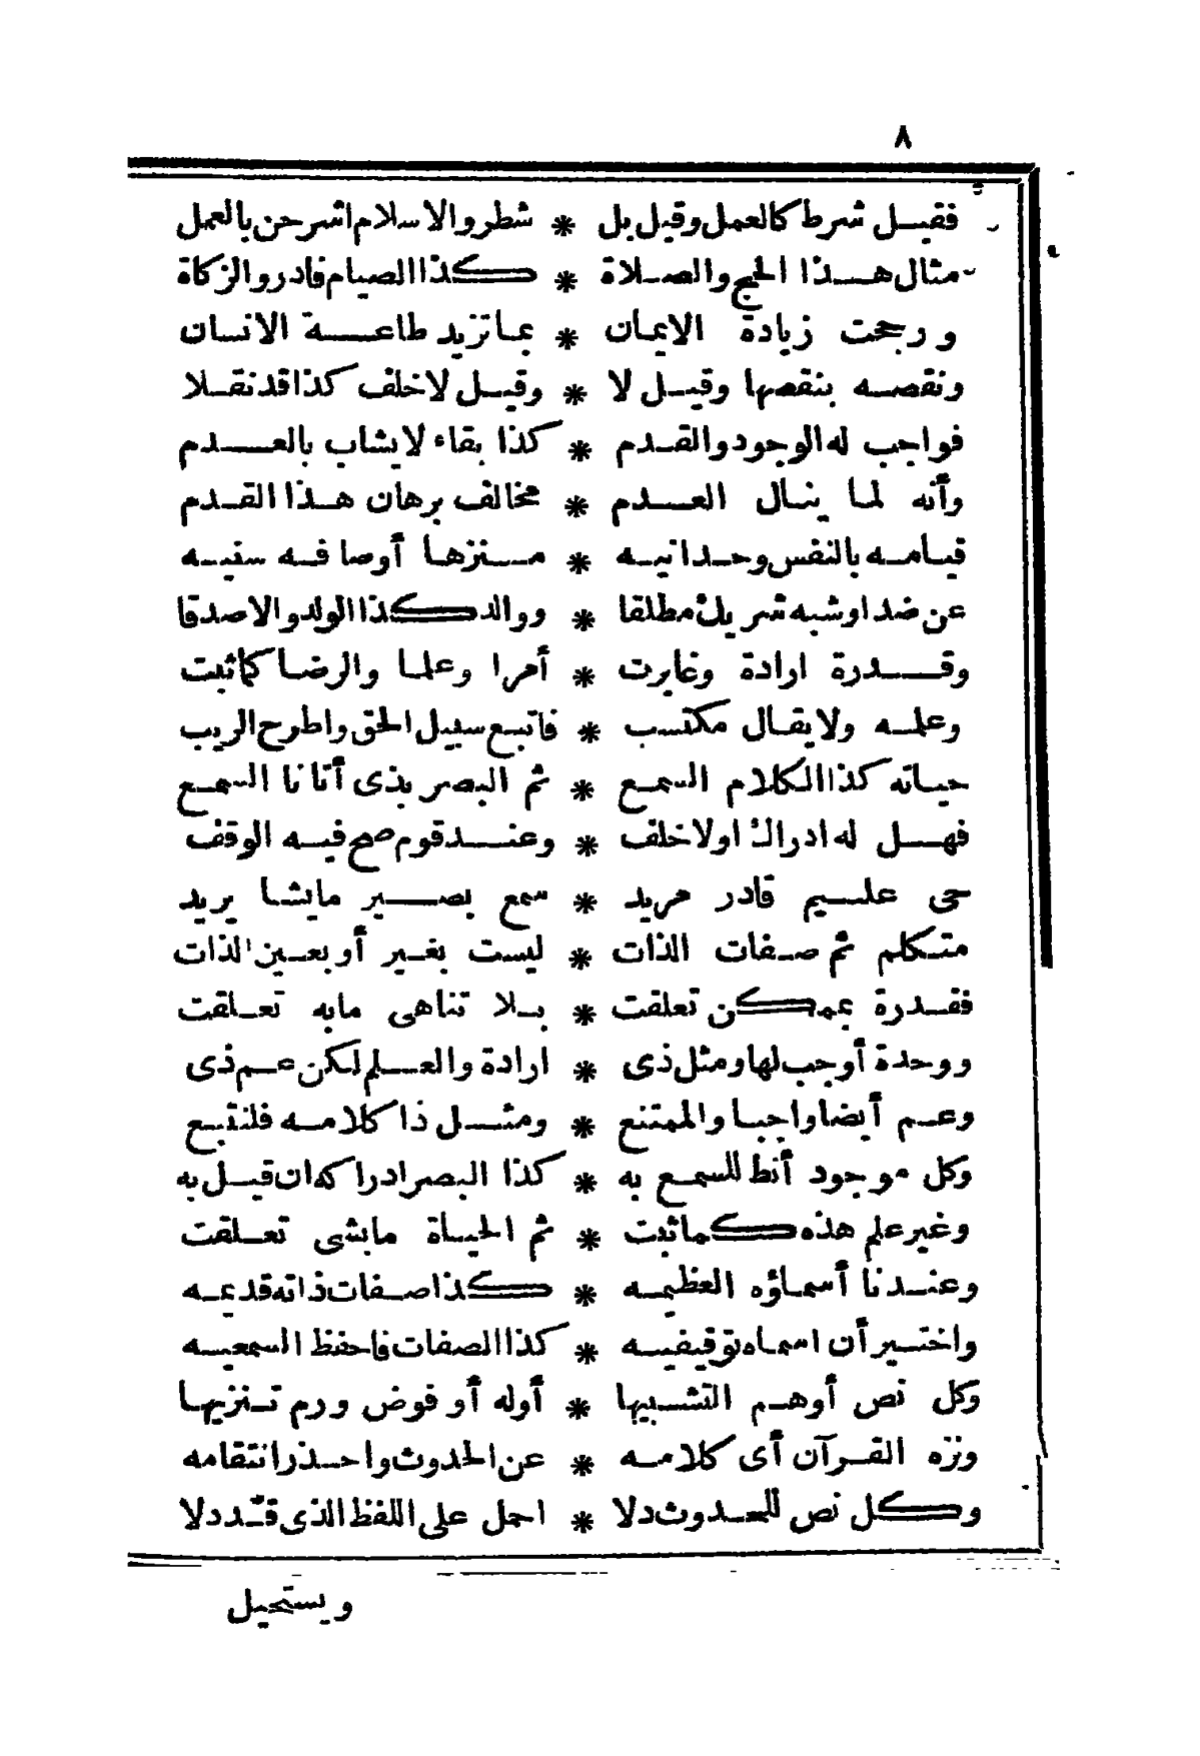 ٨
فقيل شرط كالعمل وقيل بل * شطر والاسلام اشرحن بالعمل
مثال هذا الحج والصلاة * كذا الصيام فادر والزكاة
ورجحت زيادة الايمان * بما تزيد طاعة الانسان
ونقصه بنقصها وقيل لا * وقيل لا خلف كذا قد نقلا
فواجب له الوجود والقدم * كذا بقاء لا يشاب بالعدم
وأنه لما ينال العدم * مخالف برهان هذا القدم
قيامه بالنفس وحدانيه * منزها أوصافه سنيه
عن ضد او شبه شريك مطلقا * ووالد كذا الولد والاصدقا
وقدرة ارادة وغايرت * أمرا وعلما والرضا كما ثبت
وعلمه ولا يقال مكتسب * فاتبع سبيل الحق واطرح الريب
حياته كذا الكلام السمع * ثم البصر بذى أتانا السمع
فهل له ادراك او لا خلف * وعند قوم صح فيه الوقف
حى عليم قادر مريد * سمع بصير مايشا يريد
متكلم ثم صفات الذات * ليست بغير أو بعين الذات
فقدرة بممكن تعلقت * بلا تناهى مابه تعلقت
ووحدة أوجب لها ومثل ذى * ارادة والعلم لكن عم ذى
وعم أيضا واجبا والممتنع * ومثل ذا كلامه فلنتبع
وكل موجود أنط للسمع به * كذا البصر ادراكه ان قيل به
وغير علم هذه كما ثبت * ثم الحياة مابشى تعلقت
وعندنا أسماؤه العظيمه * كذا صفات ذاته قديمه
واختير أن اسماه توقيفيه * كذا الصفات فاحفظ السمعيه
وكل نص أوهم التشبيها * أوله أو فوض ورم تنزيها
ونزه القرآن أى كلامه * عن الحدوث واحذر انتقامه
وكل نص للحدوث دلا * احمل على اللفظ الذى قد دلا
ويستحيل